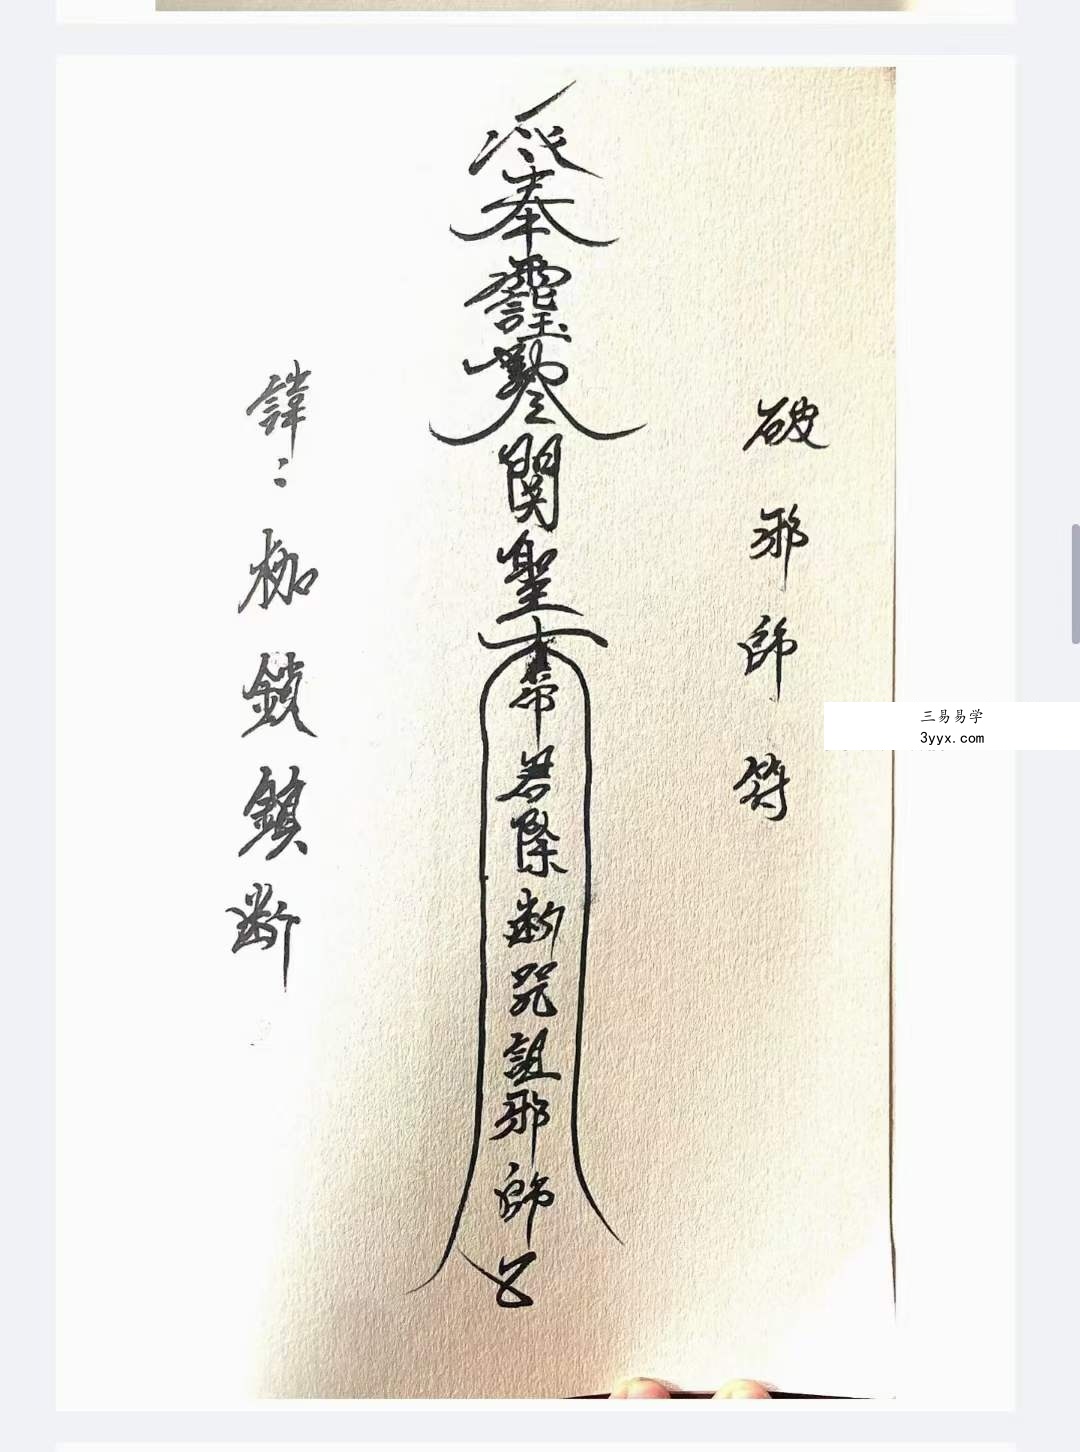 破邪師符
奉
勅令
關聖帝君際斷咒詛邪師
諱：枷鎖鎮斷
三易易学
3yyx.com